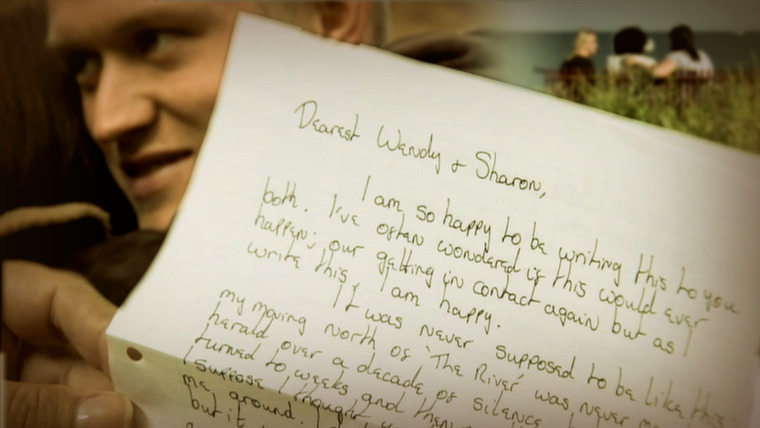 Dearest Wendy & Sharon,
I am so happy to be writing this to you
both. I've often wondered if this would ever
happen; our getting in contact again but as I
write this, I am happy.
It was never supposed to be like this
my moving north of 'The River' was never
herald over a decade of silence
turned to weeks and then
I suppose I thought
me ground.
but it